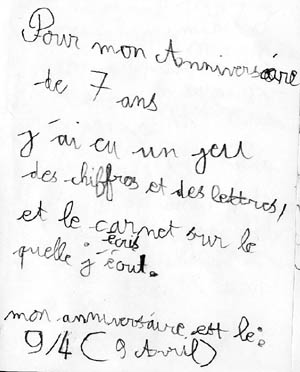 Pour mon Anniversáire
de 7 ans
j'ai eu un jeu
des chiffres et des lettres,
et le carnet sur le
quelle j'écris écout.
mon anniversáire est le:
9/4 (9 Avril)